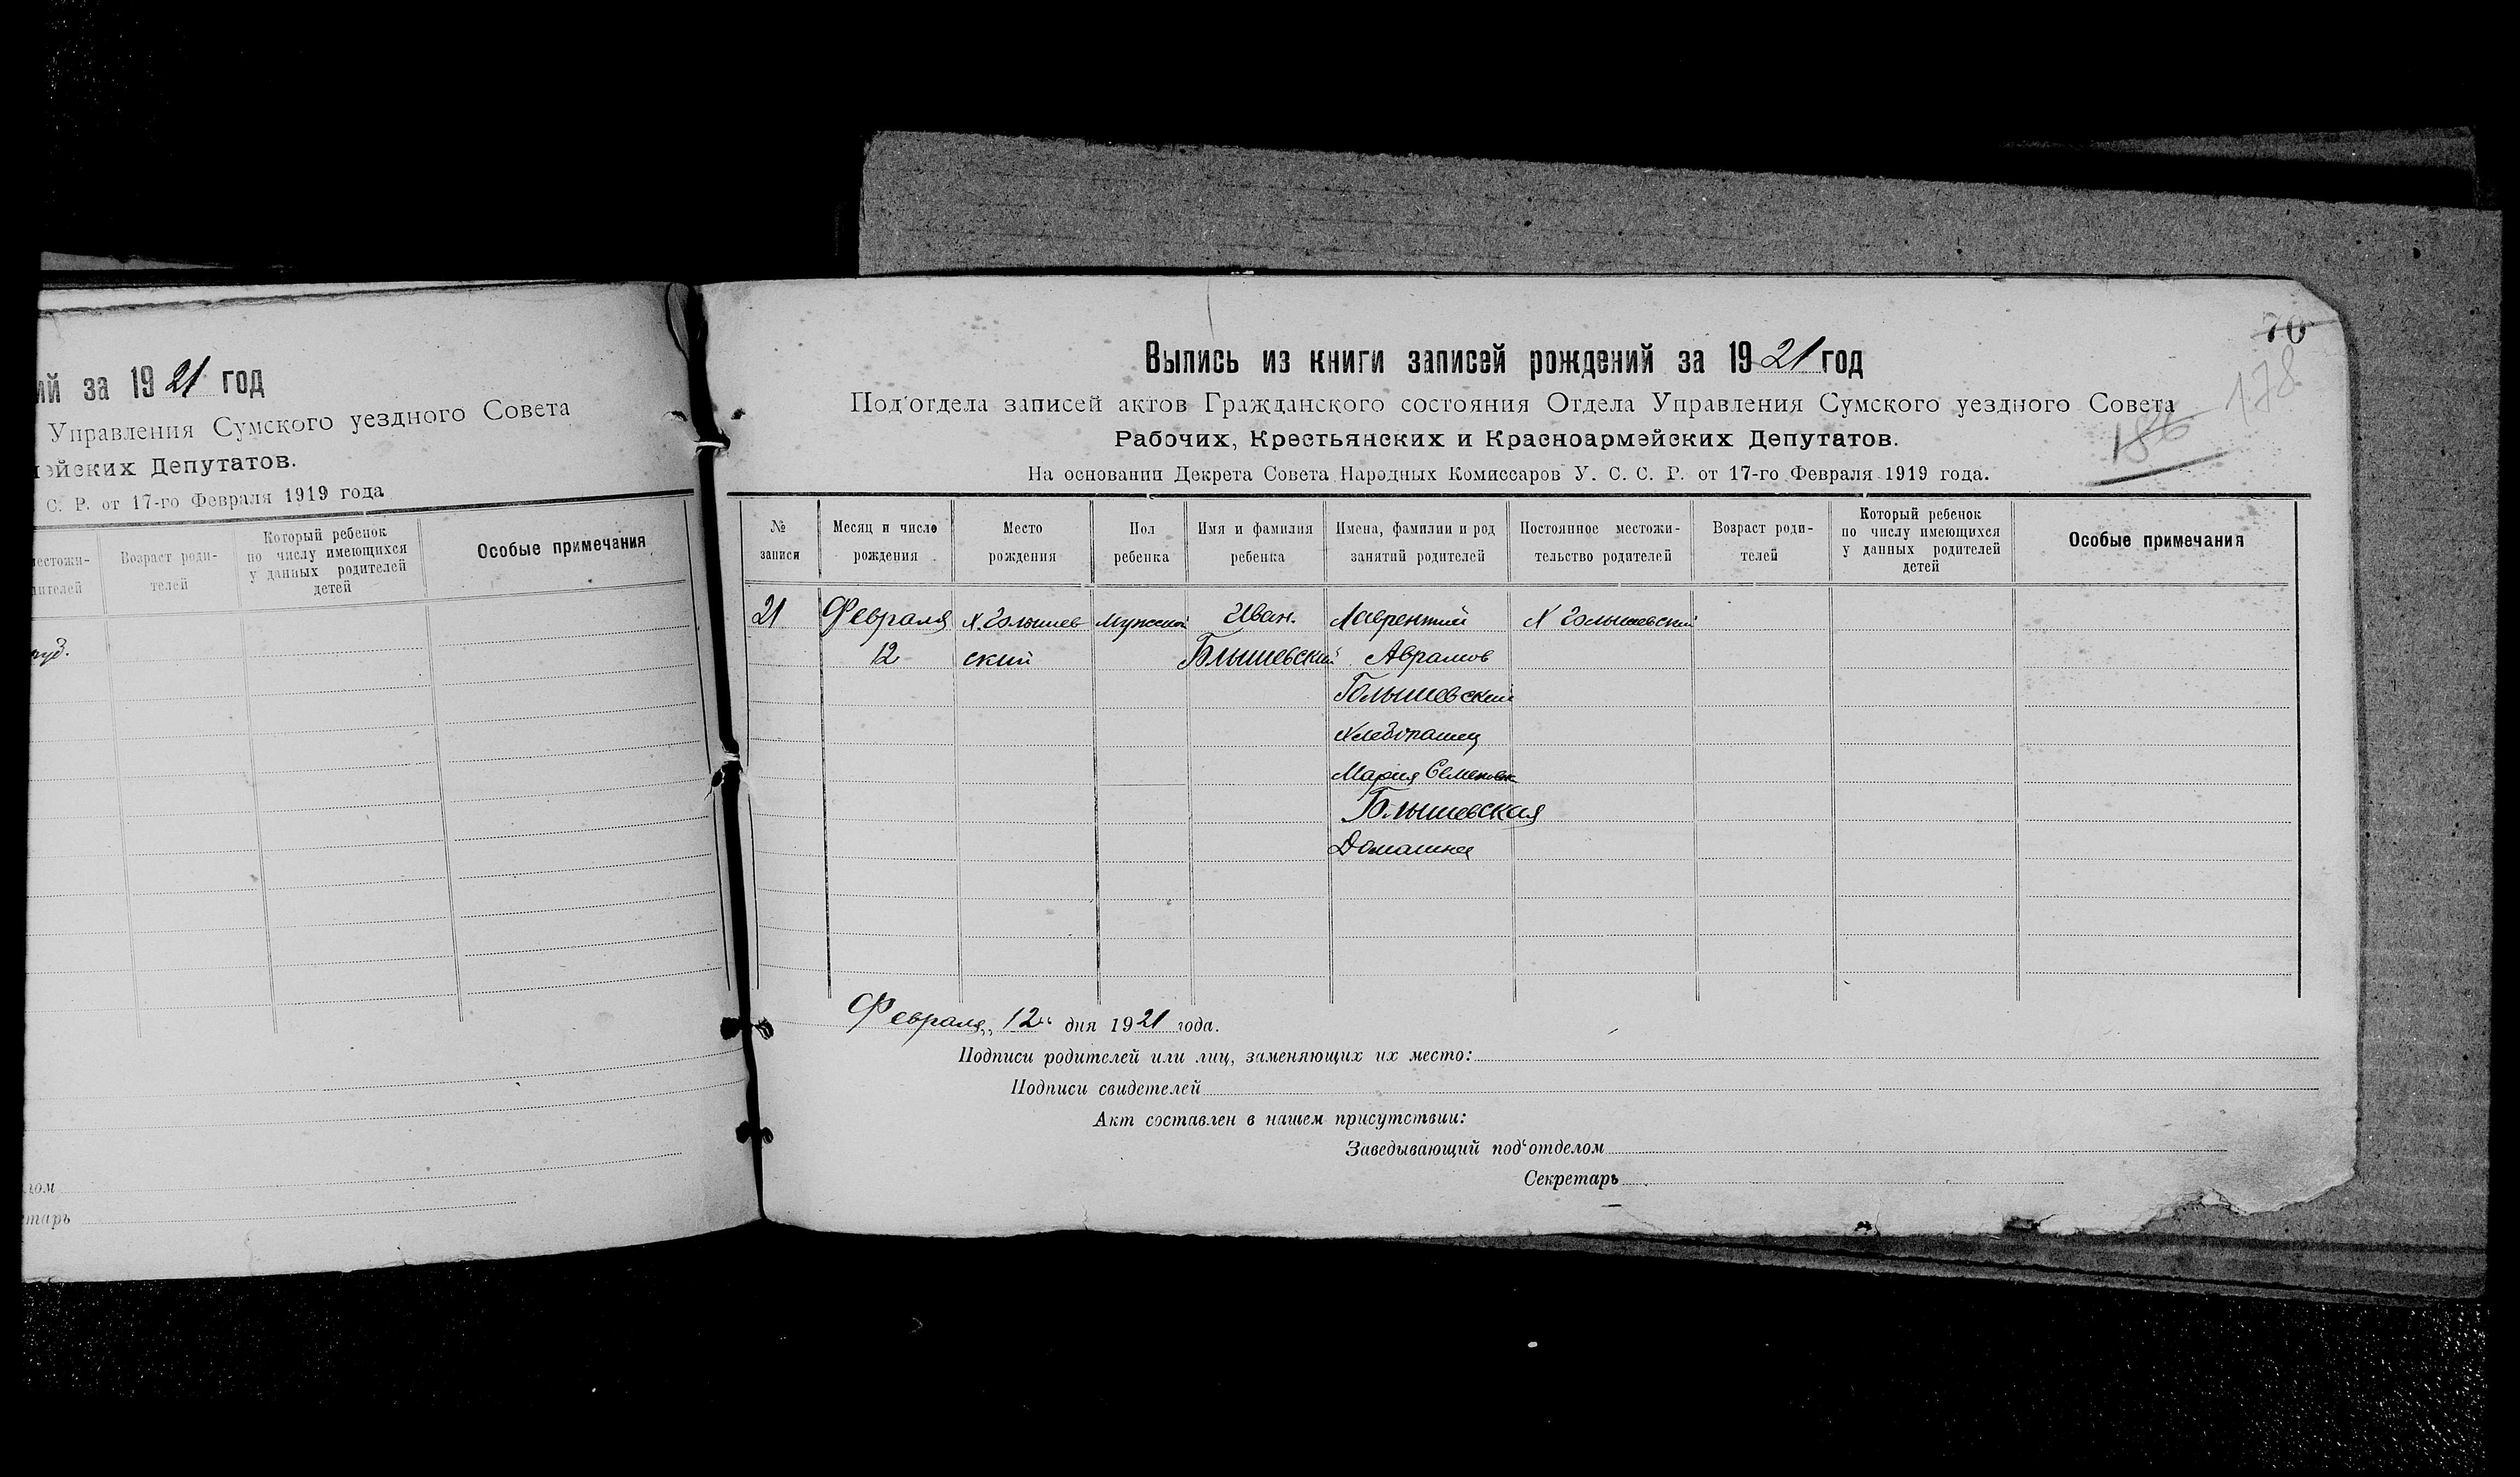 ий за 1921 год
Управления Сумского уездного Совета
ейских Депутатов.
С. Р. от 17-го Февраля 1919 года
Возраст роди-
телей
Который ребенок
по числу имеющихся
у данных родителей
детей
Особые примечания
70
178
186
Выпись из книги записей рождений за 1921 год
Под'отдела записей актов Гражданского состояния Отдела Управления Сумского уездного Совета
Рабочих, Крестьянских и Красноармейских Депутатов.
На основании Декрета Совета Народных Комиссаров У. С. С. Р. от 17-го Февраля 1919 года.
№
записи
Месяц и число
рождения
Место
рождения
Пол
ребенка
Имя и фамилия
ребенка
Имена, фамилии и род
занятий родителей
Постоянное местожи-
тельство родителей
Возраст роди-
телей
Который ребенок
по числу имеющихся
у данных родителей
детей
Особые примечания
21 Февраля Х. Голышев Мужской Иван. Лаврентий Х Голышевский
12 ский Голышевский Аврамов
Голышевский
Хлебопашец
Мария Семеновн
Голышевская
Домашняя
Февраля „12“ дня 1921 года.
Подписи родителей или лиц, заменяющих их место:
Подписи свидетелей
Акт составлен в нашем присутствии:
Заведывающий под'отделом
Секретарь